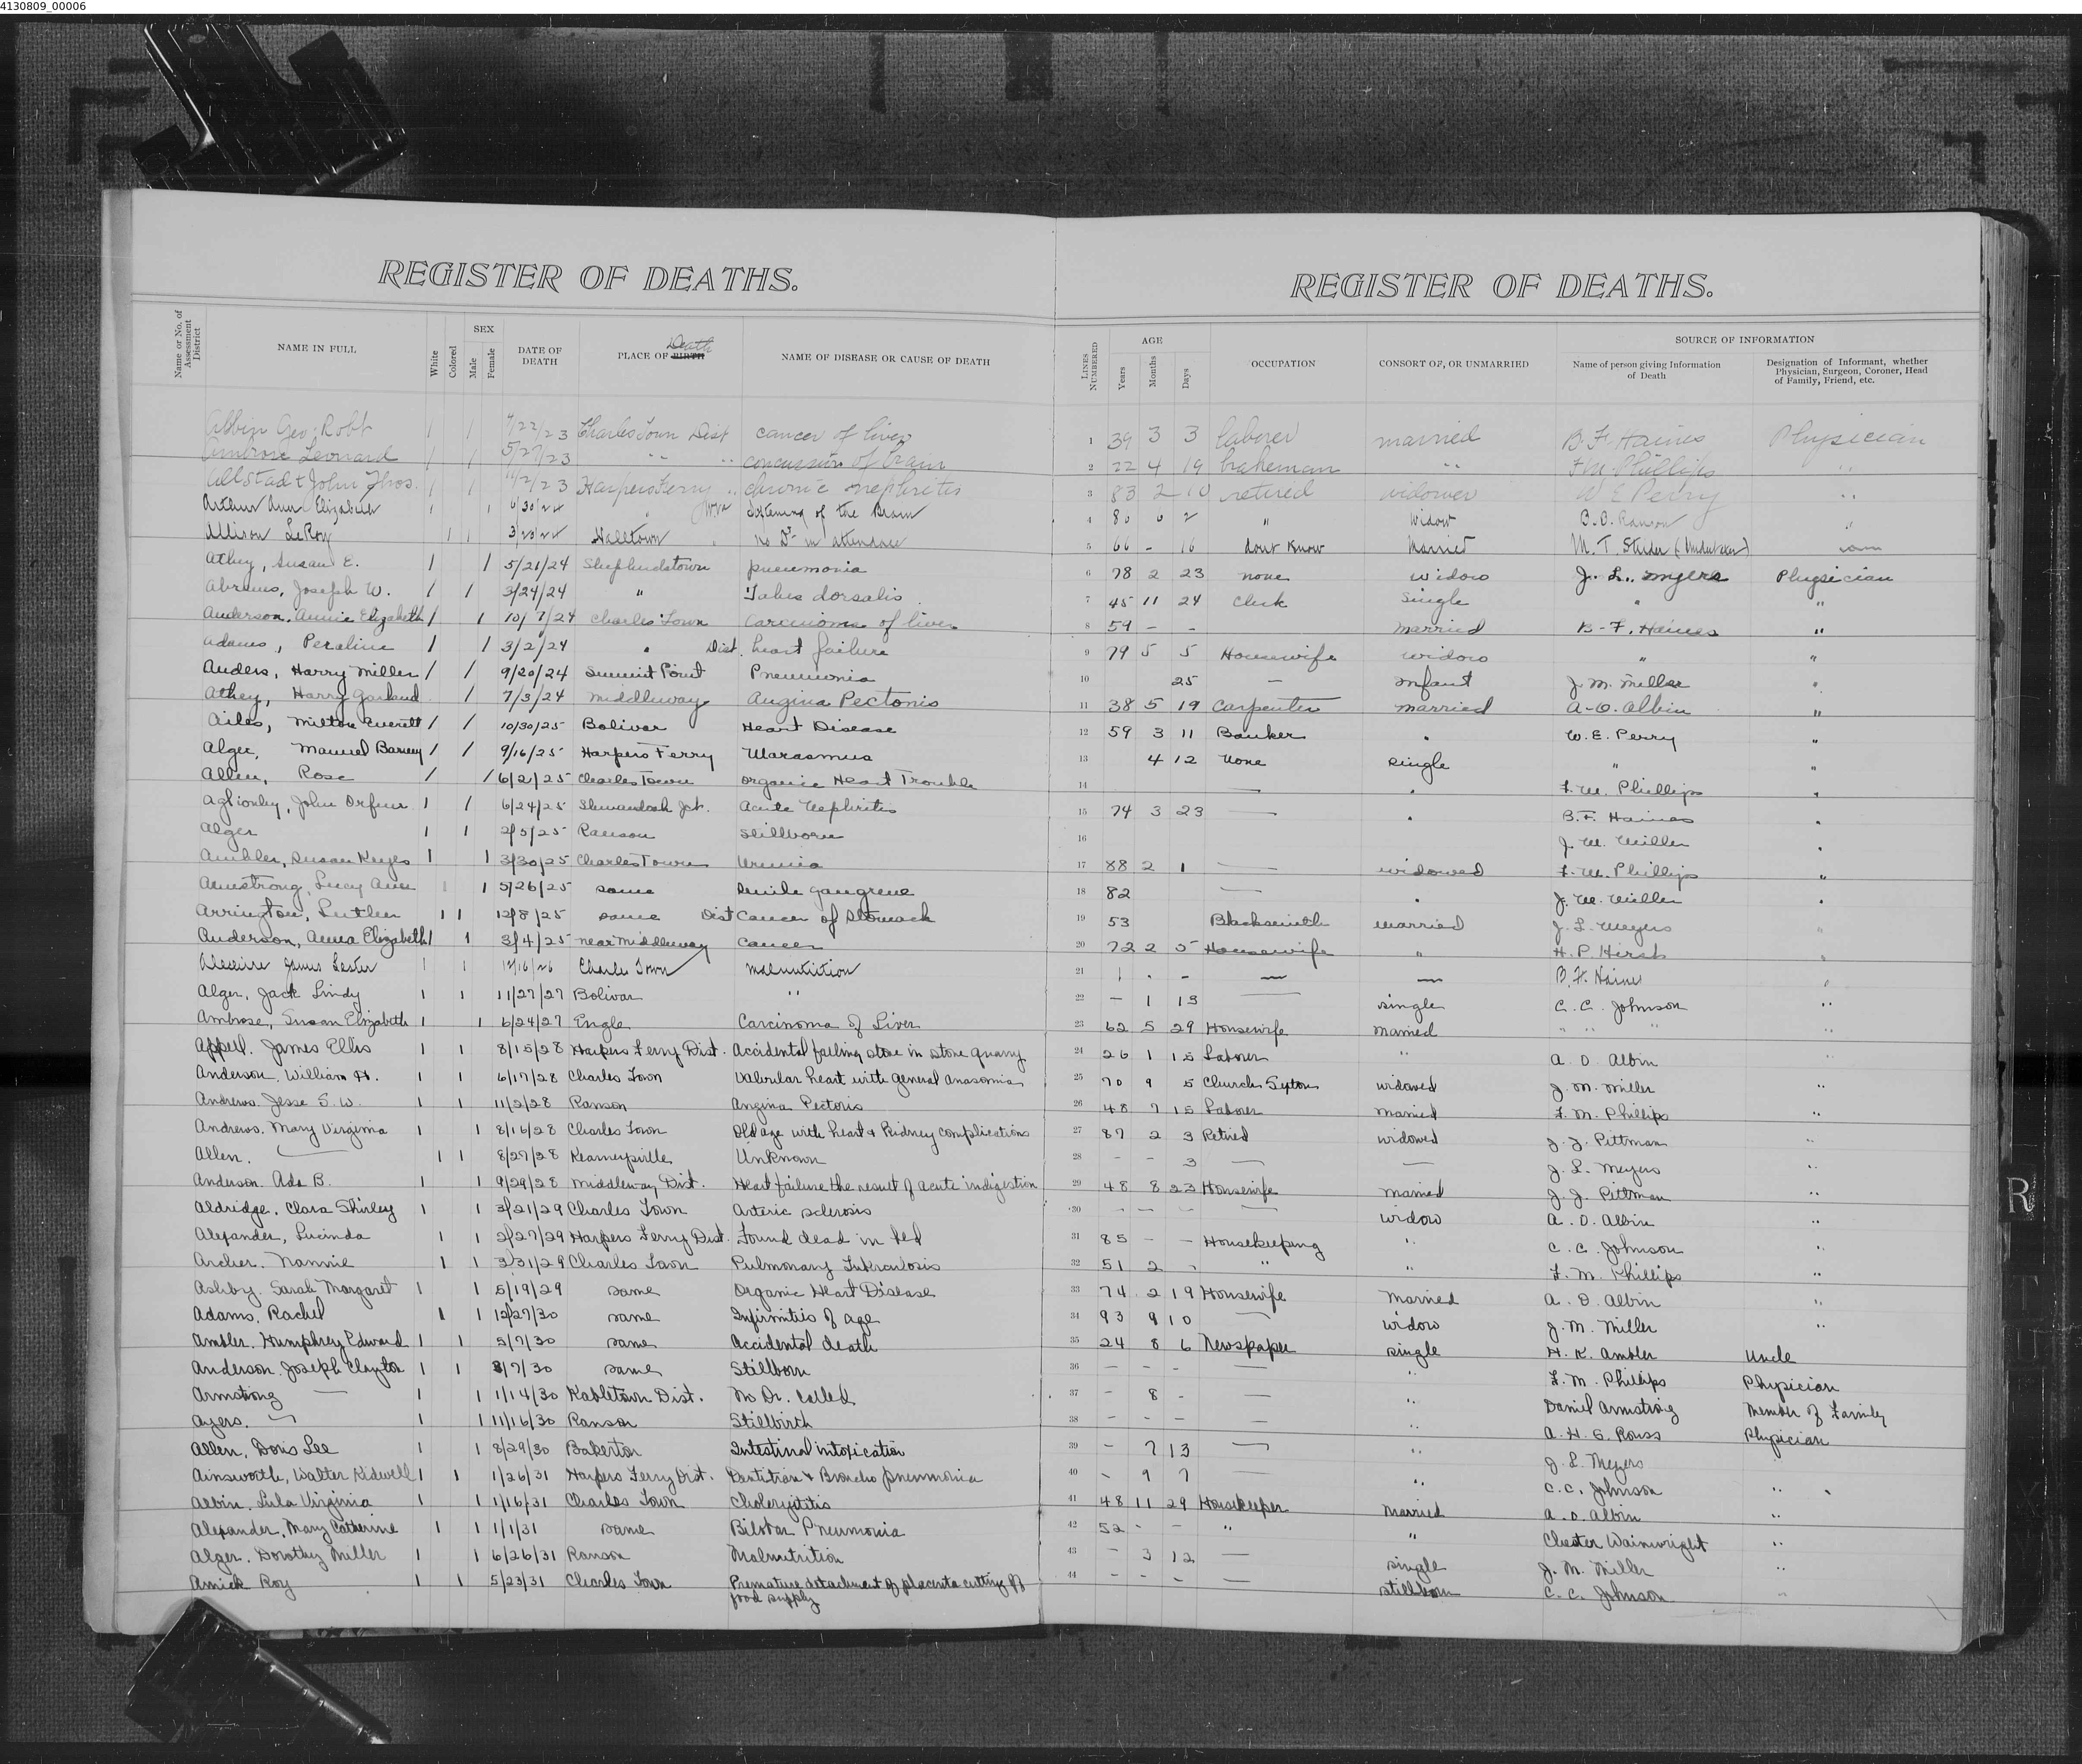 4130809_00006
REGISTER OF DEATHS.
Name or No. of Assessment District
NAME IN FULL
White
Colored
SEX
Male
Female
DATE OF DEATH
PLACE OF BIRTH Death
NAME OF DISEASE OR CAUSE OF DEATH
Albin Geo. Robt 1 1 7/22/23 Charles Town Dist cancer of liver
Ambrose Leonard 1 1 5/27/23 " " concussion of brain
Allstadt John Thos. 1 1 11/2/23 Harpers Ferry " chronic nephritis
Arthur Ann Elizabeth 1 1 6/30/24 " Softening of the Brain
Allison LeRoy 1 1 3/23/24 Halltown no Dr in attendance
Athey, Susan E. 1 1 5/21/24 Shepherdstown pneumonia
Abrams, Joseph W. 1 1 3/24/24 " Tabes dorsalis
Anderson, Annie Elizabeth 1 1 10/7/24 Charles Town Carcinoma of liver
Adams, Peraline 1 1 3/2/24 " Dist. heart failure
Anders, Harry Miller 1 1 9/20/24 Summit Point Pneumonia
Athey, Harry Garland 1 7/3/24 Middleway Angina Pectoris
Ailes, Milton Everett 1 1 10/30/25 Bolivar Heart Disease
Alger, Manuel Barney 1 1 9/16/25 Harpers Ferry Marasmus
Allen, Rose 1 1 6/2/25 Charles Town Organic Heart Trouble
Aglionby, John Orfeur 1 1 6/24/25 Shenandoah Jct. Acute Nephritis
Alger 1 1 2/5/25 Ranson Stillborn
Ambler, Susan Keyes 1 1 3/30/25 Charles Town Uremia
Armstrong, Lucy Ann 1 1 5/26/25 same Senile gangrene
Arrington, Luther 1 1 12/8/25 same Dist Cancer of Stomach
Anderson, Anna Elizabeth 1 1 3/4/25 near Middleway Cancer
James Lester 1 1 12/16/26 Charles Town Malnutrition
Alger, Jack Lindy 1 1 11/27/27 Bolivar "
Ambrose, Susan Elizabeth 1 1 6/24/27 Engle Carcinoma of Liver
Appell. James Ellis 1 1 8/15/28 Harpers Ferry Dist. Accidental falling stone in stone quarry
Anderson. William H. 1 1 6/17/28 Charles Town Valvular heart with general anasomia
Andrews. Jesse S. W. 1 1 11/2/28 Ranson Angina Pectoris
Andrews. Mary Virginia 1 1 8/16/28 Charles Town Old age with heart & Kidney complications
Allen. 1 1 8/27/28 Kearneysville Unknown
Anderson. Ada B. 1 1 9/29/28 Middleway Dist. Heart failure the result of acute indigestion
Aldridge. Clara Shirley 1 1 3/21/29 Charles Town Arterio sclerosis
Alexander, Lucinda 1 1 2/27/29 Harpers Ferry Dist. Found dead in bed
Archer. Nannie 1 1 3/31/29 Charles Town Pulmonary Tuberculosis
Ashby. Sarah Margaret 1 1 5/19/29 same Organic Heart Disease
Adams. Rachel 1 1 12/27/30 same Infirmities of age
Ambler. Humphrey Edward 1 1 5/7/30 same Accidental death
Anderson. Joseph Clayton 1 1 8/7/30 same Stillborn
Armstrong — 1 1 1/14/30 Kabletown Dist. No Dr. called
Ayers. 1 1 11/16/30 Ranson Stillbirth
Allen, Doris Lee 1 1 8/29/30 Bakerton Intestinal intoxication
Ainsworth, Walter Kidwell 1 1 1/26/31 Harpers Ferry Dist. Dentition & Broncho pneumonia
Albin. Lula Virginia 1 1 1/16/31 Charles Town
Alexander, Mary Catherine 1 1 1/1/31 same Pneumonia
Alger. Dorothy Miller 1 1 6/26/31 Ranson Malnutrition
Amick Roy 1 1 5/23/31 Charles Town Premature detachment of placenta cutting off food supply
REGISTER OF DEATHS.
LINES NUMBERED
AGE
Years
Months
Days
OCCUPATION
CONSORT OF, OR UNMARRIED
SOURCE OF INFORMATION
Name of person giving Information of Death
Designation of Informant, whether Physician, Surgeon, Coroner, Head of Family, Friend, etc.
1 39 3 3 laborer married B. F. Haines Physician
2 22 4 19 brakeman " F. M. Phillips "
3 83 2 10 retired widower W. E. Perry "
4 80 6 2 " Widow B. B. Ranson "
5 66 - 16 dont Know Married M. T. Strider (Undertaker)
6 78 2 23 none widow J. L. Myers Physician
7 45 11 24 Clerk Single " "
8 59 - - married B. F. Haines "
9 79 5 5 Housewife widow " "
10 25 — Infant J. M. Miller "
11 38 5 19 Carpenter married A. O. Albin "
12 59 3 11 Banker " W. E. Perry "
13 4 12 None single " "
14 — " F. M. Phillips "
15 74 3 23 — " B. F. Haines "
16 J. M. Miller "
17 88 2 1 — widowed F. M. Phillips "
18 82 — " J. M. Miller "
19 53 Blacksmith married J. L. Meyers "
20 72 2 5 Housewife " H. P. Hirsh "
21 1 . - — — B. F. Haines "
22 - 1 13 — single C. C. Johnson "
23 62 5 29 Housewife Married " " " "
24 26 1 15 Laborer " A. O. Albin "
25 70 9 5 Church Sexton widowed J. M. Miller "
26 48 7 15 Laborer Married F. M. Phillips "
27 87 2 3 Retired widowed J. J. Pittman "
28 - - 3 — — J. L. Meyers "
29 48 8 23 Housewife Married J. J. Pittman "
30 - - - — widow A. O. Albin "
31 85 - - Housekeeping " C. C. Johnson "
32 51 2 - " " F. M. Phillips "
33 74 2 19 Housewife Married A. O. Albin "
34 93 9 10 — widow J. M. Miller "
35 24 8 6 Newspaper single H. K. Ambler Uncle
36 - - - — " F. M. Phillips Physician
37 - 8 - — " Daniel Armstrong Member of Family
38 - - - — " A. H. S. Rouss Physician
39 - 7 13 — " J. L. Meyers
40 - 9 7 — " C. C. Johnson "
41 48 11 29 Housekeeper Married A. O. Albin "
42 52 - - " " Chester Wainwright "
43 - 3 12 — single J. M. Miller "
44 - - - — stillborn C. C. Johnson "
R